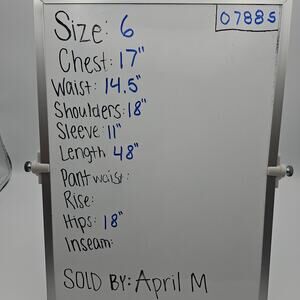 Size: 6
07885
Chest: 17"
Waist: 14.5"
Shoulders: 18"
Sleeve: 11"
Length 48"
Pant waist:
Rise:
Hips: 18"
Inseam:
SOLD BY: April M